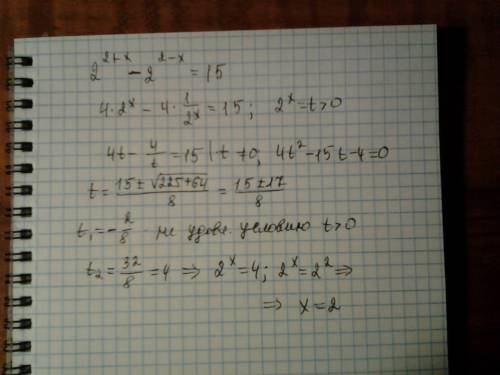 2^{2+x} - 2^{2-x} = 15
4·2^x - 4·\frac{1}{2^x} = 15; 2^x = t > 0
4t - \frac{4}{t} = 15 | t ≠ 0, 4t^2 - 15t - 4 = 0
t = \frac{15 ± \sqrt{225+64}}{8} = \frac{15 ± 17}{8}
t_1 = -\frac{2}{8} не удовл. условию t > 0
t_2 = \frac{32}{8} = 4 ⇒ 2^x = 4; 2^x = 2^2 ⇒
⇒ x = 2